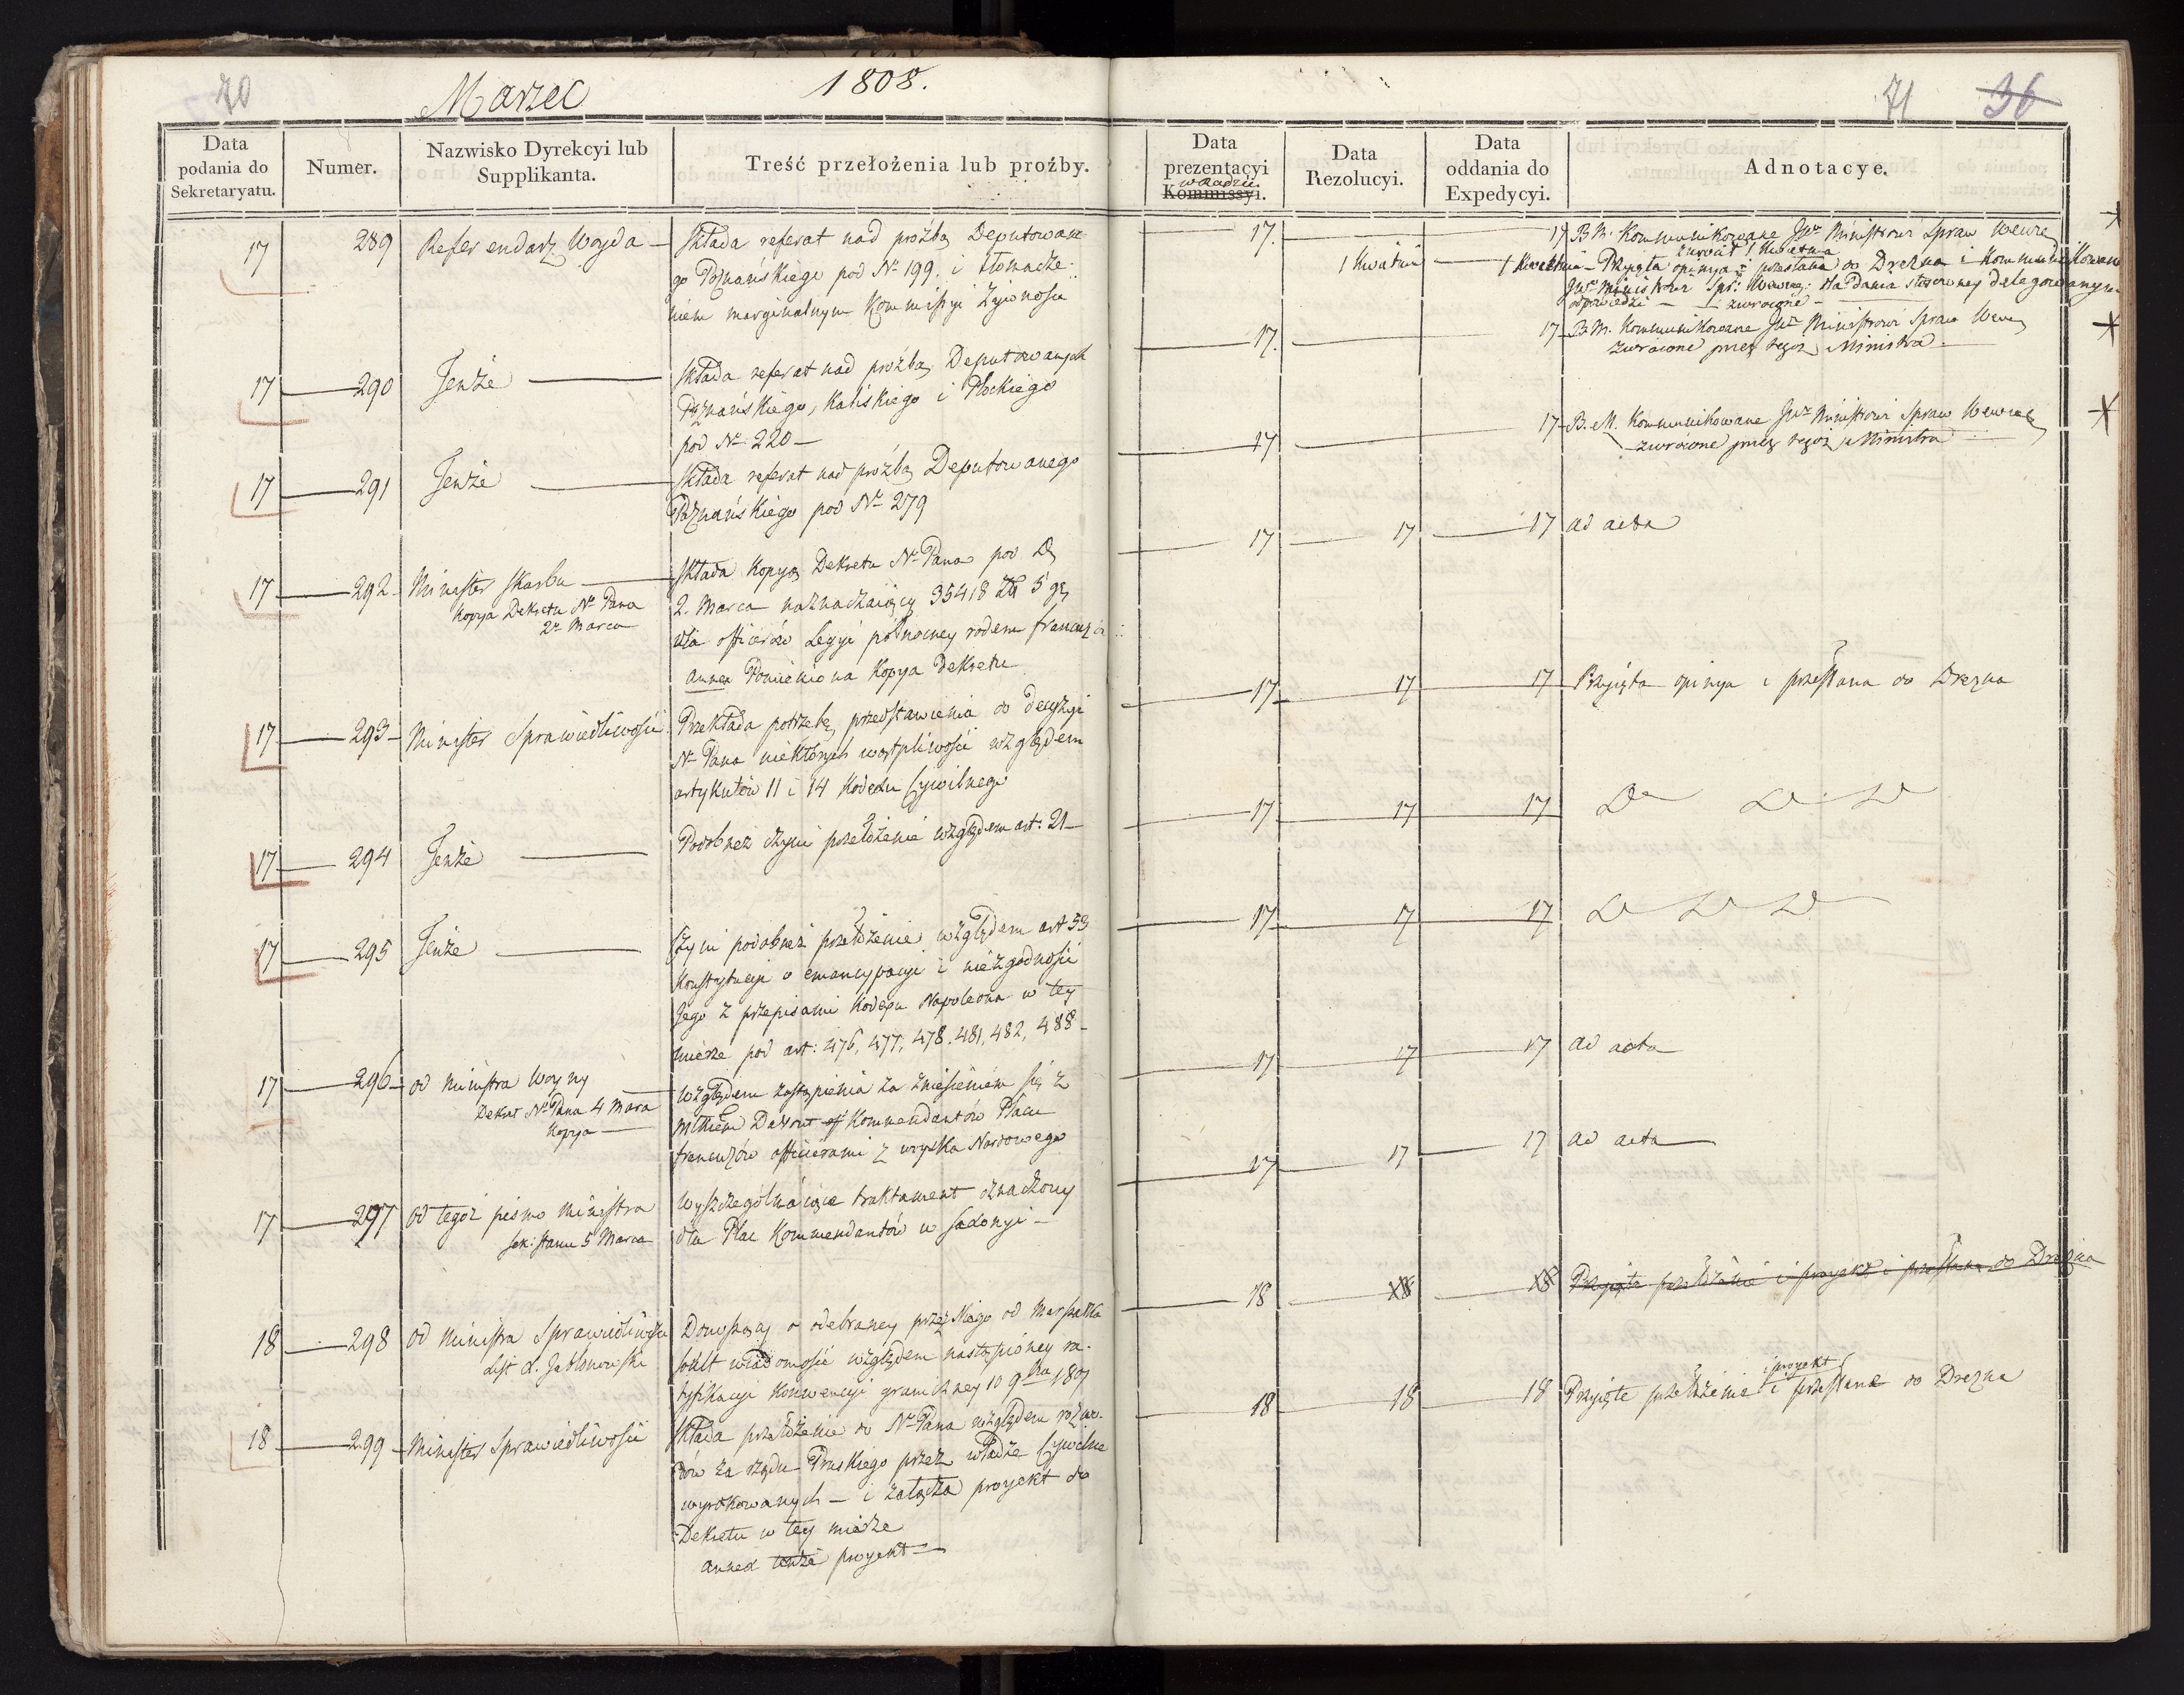 70
Marzec 1808.
Data podania do Sekretaryatu.
Numer.
Nazwisko Dyrekcyi lub Supplikanta.
Treść przełożenia lub proźby.
17 289 Referendarz Woyda — Składa referat nad proźbą Deputowane
go Poznańskiego pod Nr 199. i tłomacze
niem marginalnym Kommissyi Żywności
17 290 Tenże — Składa referat nad proźbą Deputowanych
Poznańskiego, Kaliskiego i Płockiego
pod Nr 220 —
17 291 Tenże — Składa referat nad proźbą Deputowanego
Poznańskiego pod Nr 279
17 292 Minister Skarbu — Składa Kopyą Dekretu N. Pana pod D
Kopya Dekretu N. Pana
2. Marca
2. Marca naznaczaiący 35418 Zł 5 gr
dla officerów Legyi północney rodem francuz
annex Pomieniona Kopya Dekretu
17 293 Minister Sprawiedliwości Przekłada potrzebę przedstawienia do decyzyi
N. Pana niektórych wątpliwości względem
artykułów 11 i 14 Kodexu Cywilnego
17 294 Tenże — Podobneż czyni przełożenie względem art: 21 —
17 295 Tenże — Czyni podobneż przełożenie względem art 53
Konstytucyi o emancypacyi i niezgodności
Jego z przepisami Kodexu Napoleona w tey
mierze pod art: 476, 477, 478, 481, 482, 488 —
17 296 od Ministra Woyny
Dekret N. Pana 4 Marca
Kopya —
Względem zastąpienia za zniesieniem się z
Davout Kommendantów Placu
francuzów officerami z woyska Narodowego
17 297 od tegoż pismo Ministra
Sek: Stanu 5 Marca
Wyszczególniaiące traktament oznaczony
dla Plac Kommendantów w Saxonyi —
18 298 od Ministra Sprawiedliwości
List Jabłonowski
Donoszący o odebraney przez Niego od Marszałka
Soult wiadomości względem nastąpioney ra-
tyfikacyi Konwencyi graniczney 10 9bra 1807
18 299 Minister Sprawiedliwości Składa przełożenie do N. Pana względem rozwo-
dów za rządu Pruskiego przez władze Cywilne
wyrokowanych — i załącza proyekt do
Dekretu w tey mierze
annex tenże proyekt —
71 36
Data prezentacyi Kommissyi.
w Radzie
Data Rezolucyi.
Data oddania do Expedycyi.
Adnotacye.
17. 17 B. M. Kommunikowane Ministrowi Spraw Wewn
zwrócił 1 Kwietnia
1 Kwietnia — 1 Kwietnia — Przyięta opinya i przesłana do Drezna i Kommunikowana
Ministrowi Spr: Wewnę: dla dania stosowney delegowanym
odpowiedzi — zwrócone —
17. 17 B. M. Kommunikowane Ministrowi Spraw Wewn
zwrócone przez tegoż Ministra —
17 17 B. M. Kommunikowane Ministrowi Spraw Wewn
zwrócone przez tegoż Ministra
17 17 17 ad acta
17 17 17 Przyięta opinya i przesłana do Drezna
17 17 17
17 17 17
17 17 17 ad acta
17 17 17 ad acta
18 18 18 Przyięte przełożenie i proyekt i przesłane do Drezna
18 18 18 Przyięte przełożenie i proyekt i przesłane do Drezna